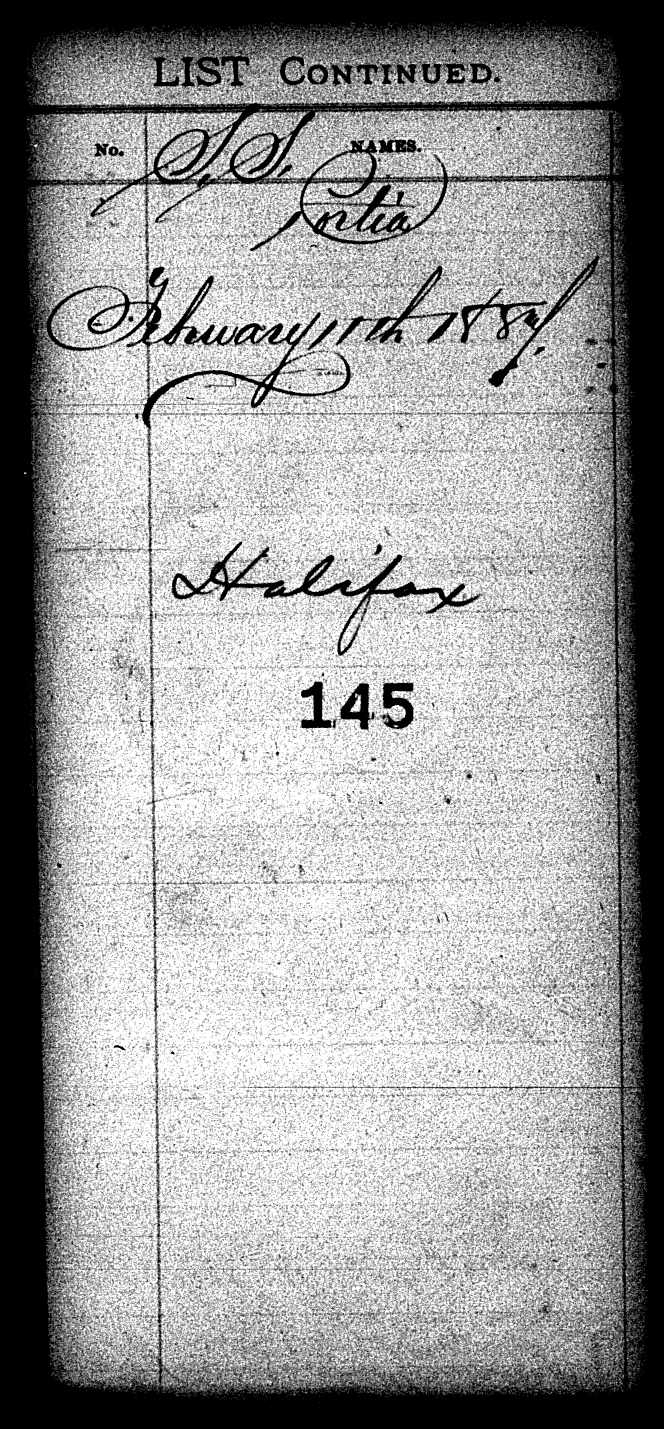 LIST CONTINUED.
No. NAMES.
S. S.
Portia
February 11th 1887.
Halifax
145